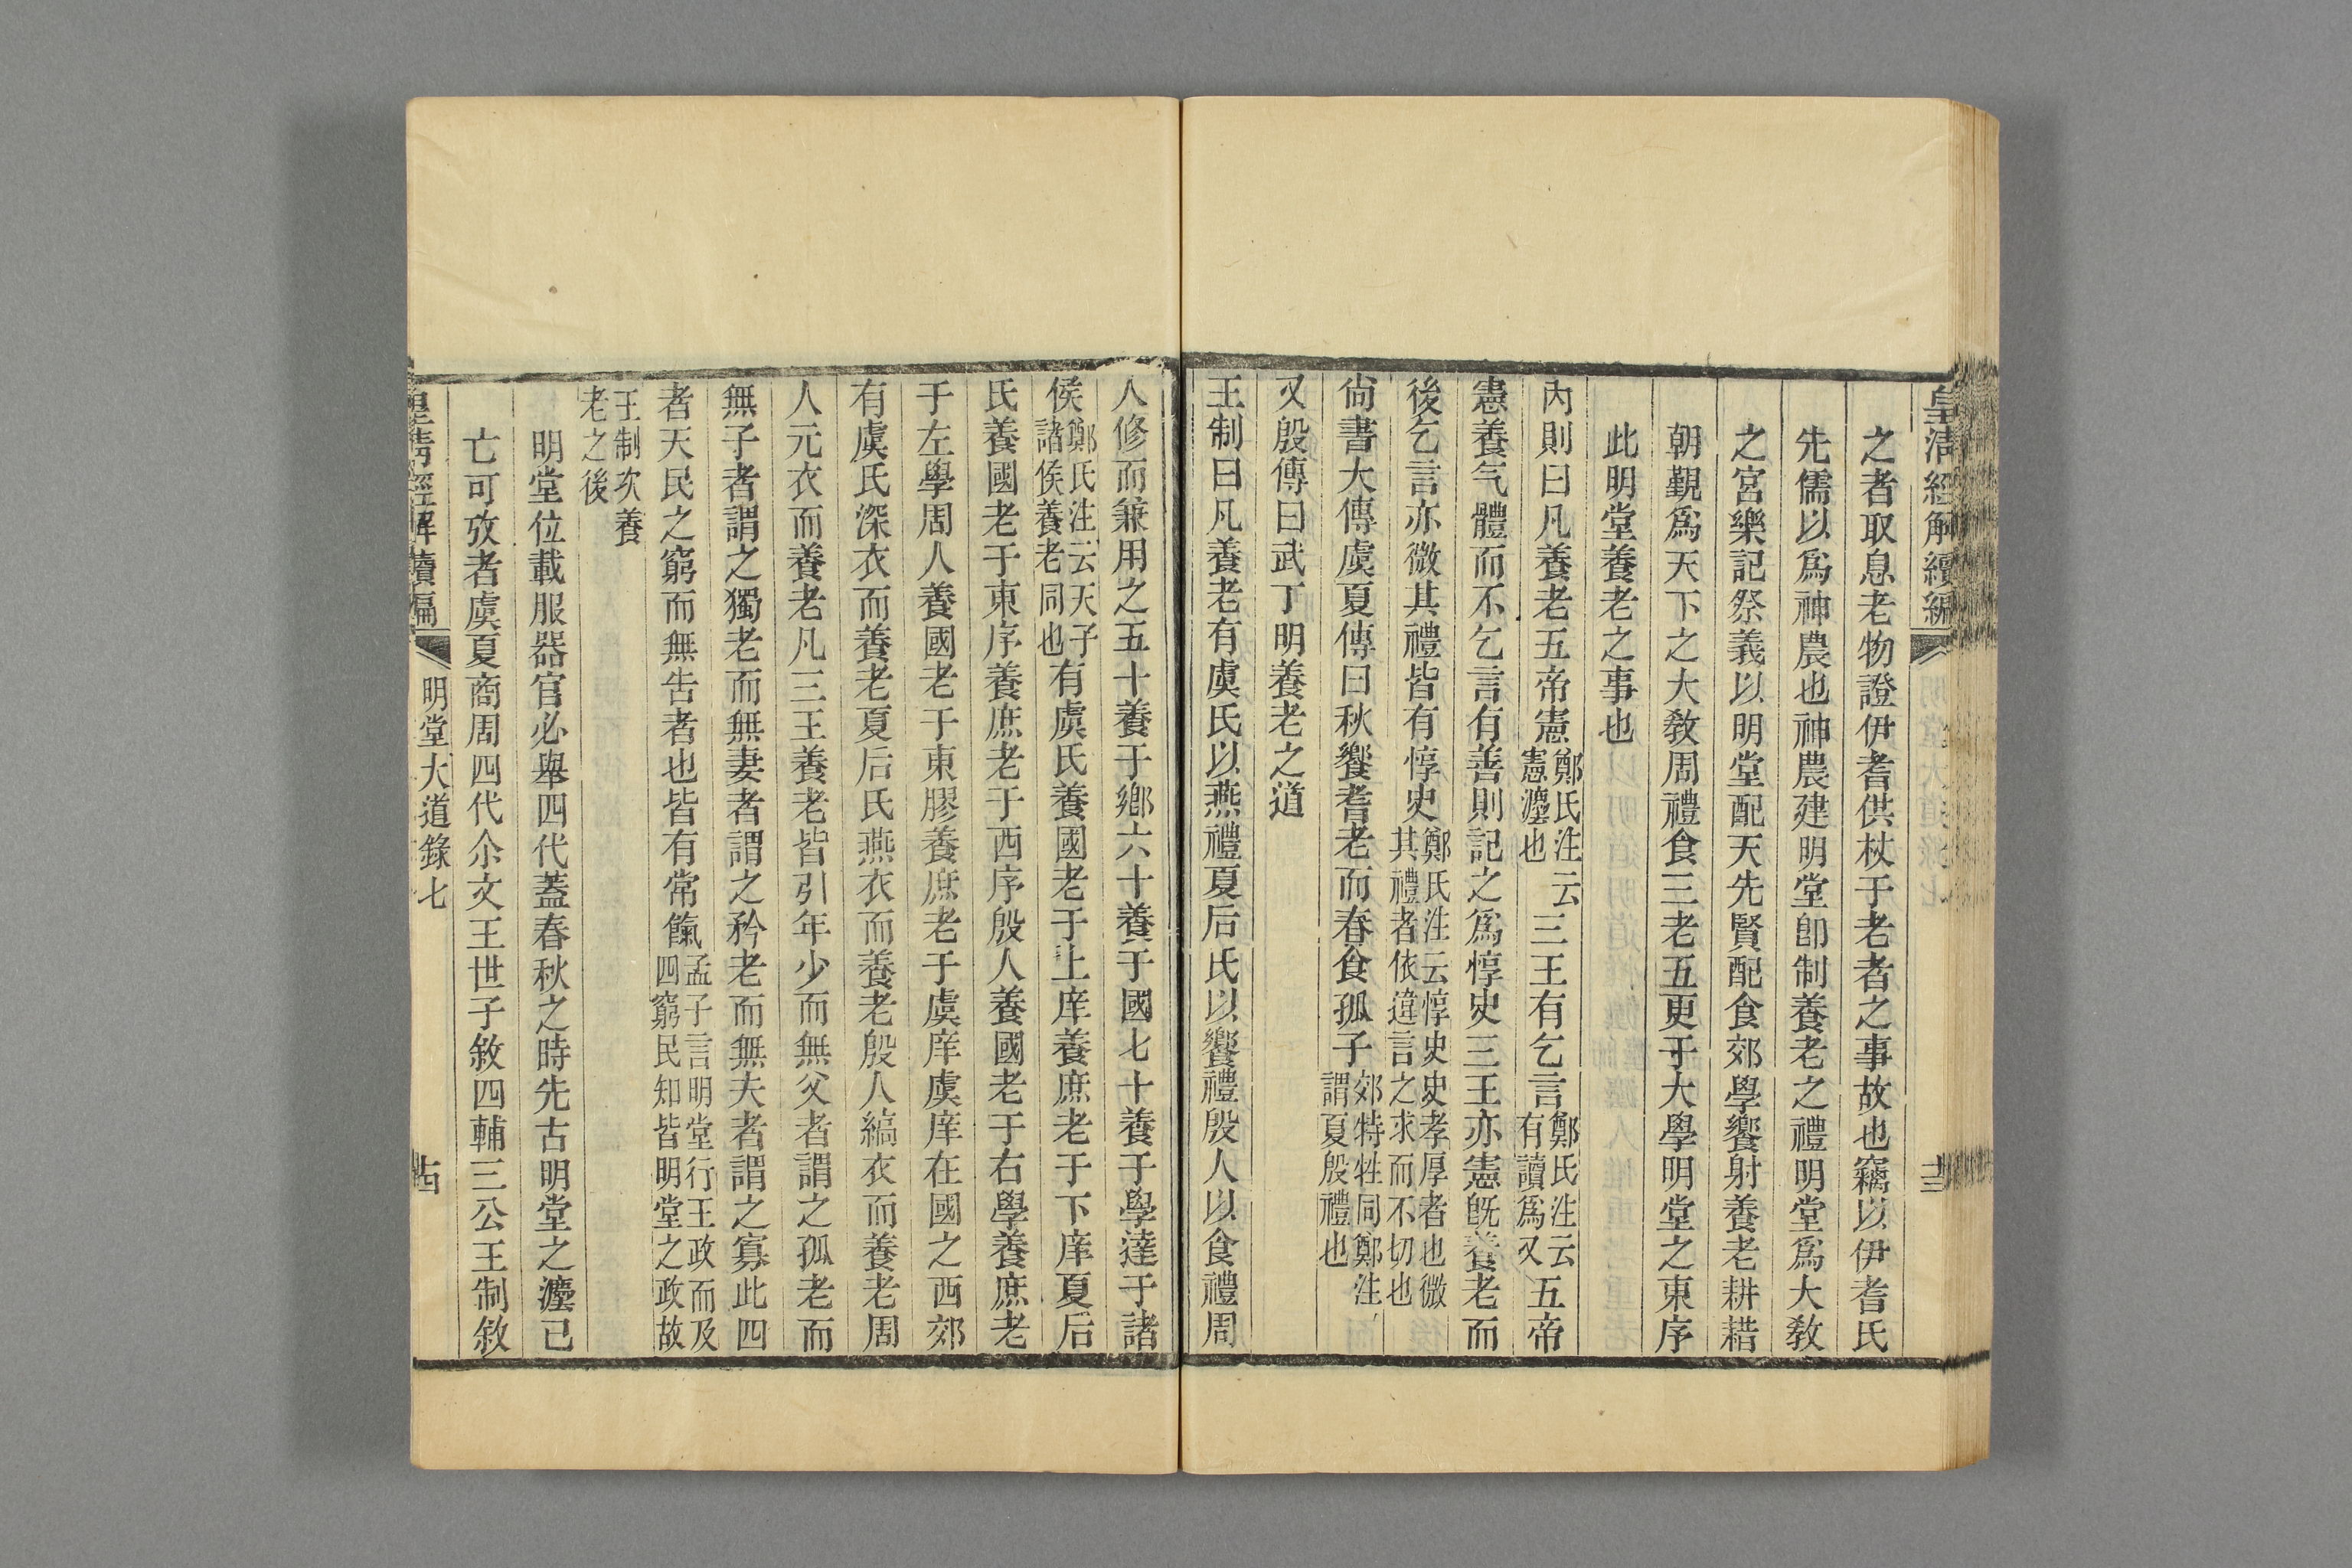 皇清經解續編
十三
之者取息老物證伊耆供杖于老者之事故也竊以伊耆氏
先儒以爲神農也神農建明堂卽制養老之禮明堂爲大敎
之宮樂記祭義以明堂配天先賢配食郊學饗射養老耕耤
朝覲爲天下之大敎周禮食三老五更于大學明堂之東序
此明堂養老之事也
內則曰凡養老五帝憲鄭氏注云憲灋也三王有乞言鄭氏注云有讀爲又五帝
憲養气體而不乞言有善則記之爲惇史三王亦憲旣養老而
後乞言亦微其禮皆有惇史鄭氏注云惇史史孝厚者也微其禮者依違言之求而不切也
尙書大傳虞夏傳曰秋饗耆老而春食孤子郊特牲同鄭注謂夏殷禮也
又殷傳曰武丁明養老之道
王制曰凡養老有虞氏以燕禮夏后氏以饗禮殷人以食禮周
人修而兼用之五十養于鄉六十養于國七十養于學達于諸
侯鄭氏注云天子諸侯養老同也有虞氏養國老于上庠養庶老于下庠夏后
氏養國老于東序養庶老于西序殷人養國老于右學養庶老
于左學周人養國老于東膠養庶老于虞庠虞庠在國之西郊
有虞氏深衣而養老夏后氏燕衣而養老殷人縞衣而養老周
人元衣而養老凡三王養老皆引年少而無父者謂之孤老而
無子者謂之獨老而無妻者謂之矜老而無夫者謂之寡此四
者天民之窮而無告者也皆有常餼孟子言明堂行王政而及四窮民知皆明堂之政故
王制次養老之後
明堂位載服器官必舉四代蓋春秋之時先古明堂之灋已
亡可攷者虞夏商周四代尒文王世子敘四輔三公王制敘
皇淸經解續編
明堂大道錄七
十四